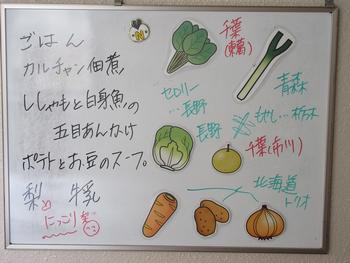 ごはん
カルチャン佃煮
ししゃもと白身魚の
五目あんかけ
ポテトとお豆のスープ
梨 牛乳
にっこり梨
千葉
青森
セロリー
…長野
長野
もやし…栃木
千葉(市川)
北海道
トリオ